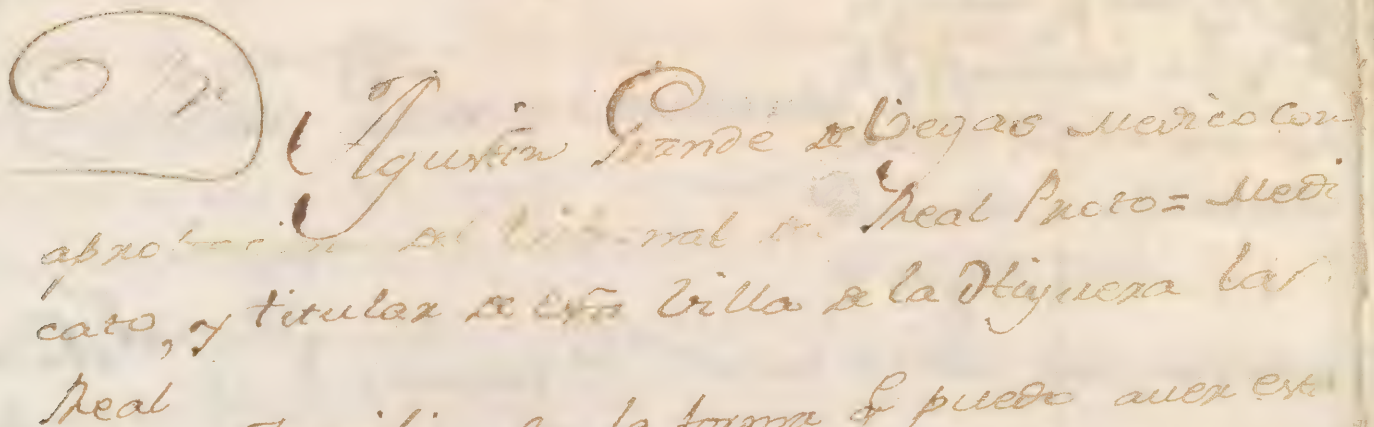 Dn Agustin Grande de Vegas Medico con
aprobacion del tribunal del Real Proto=Medi
cato, y titular de esta Villa de la Higuera la
Real
la forma q puedo aver est